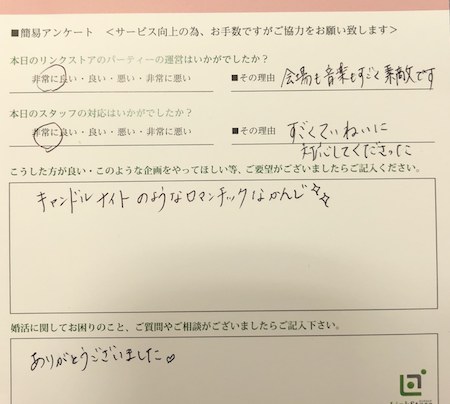 ■簡易アンケート <サービス向上の為、お手数ですがご協力をお願い致します>
本日のリンクストアのパーティーの運営はいかがでしたか?
非常に良い・良い・悪い・非常に悪い ■その理由 会場も音楽もすごく素敵です
本日のスタッフの対応はいかがでしたか?
非常に良い・良い・悪い・非常に悪い ■その理由 すごくていねいに
対応してくださった
こうした方が良い・このような企画をやってほしい等、ご要望がございましたらご記入ください。
キャンドルナイトのようなロマンチックなかんじ
婚活に関してお困りのこと、ご質問やご相談がございましたらご記入下さい。
ありがとうございました♡